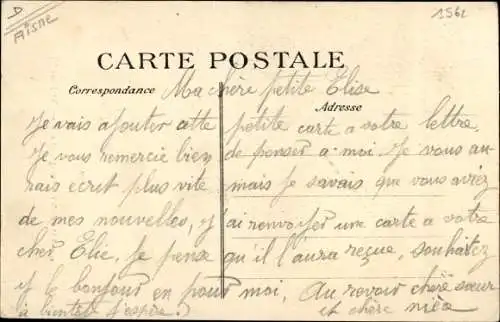 D
Aisne
1562
CARTE POSTALE
Correspondance
Ma chère petite Elise
Adresse
Je vais ajouter cette petite carte a votre lettre,
Je vous remercie bien de penser a moi Je vous au-
rais ecrit plus vite mais Je savais que vous aviez
de mes nouvelles, J'ai renvoyer une carte a votre
cher, Elie, Je pense qu'il l'aura reçue, souhaitez
y le bonjour en pour moi, Au revoir chère sœur
à bientôt J'espère? et chère nièce